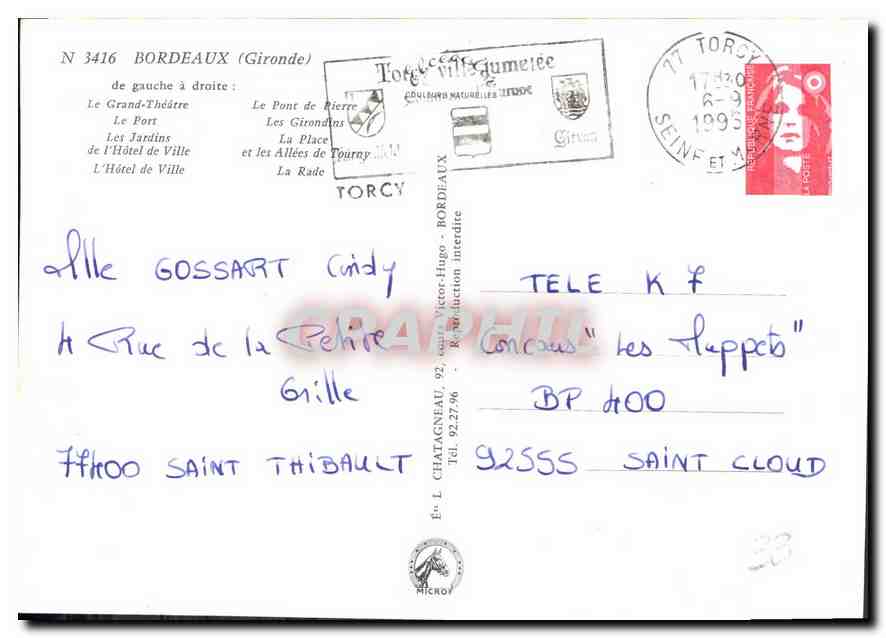 N 3416 BORDEAUX (Gironde)
de gauche à droite :
Le Grand-Théâtre
Le Port
Les Jardins
de l'Hôtel de Ville
L'Hôtel de Ville
Le Pont de Pierre
Les Girondins
La Place
et les Allées de Tourny
La Rade
COULEURS NATURELLES
ville jumelée
Girvan
TORCY
77 TORCY
17H30
6-9
1993
SEINE ET MARNE
REPUBLIQUE FRANÇAISE
LA POSTE
Mlle GOSSART Cindy
4 Rue de la Petite
Grille
77400 SAINT THIBAULT
Édn L CHATAGNEAU, 92, cours Victor-Hugo - BORDEAUX
Tél. 92.27.96 - Reproduction interdite
TELE K 7
Concours "Les Muppets"
BP 400
92555 SAINT CLOUD
CRAPHIL
MICROF
33